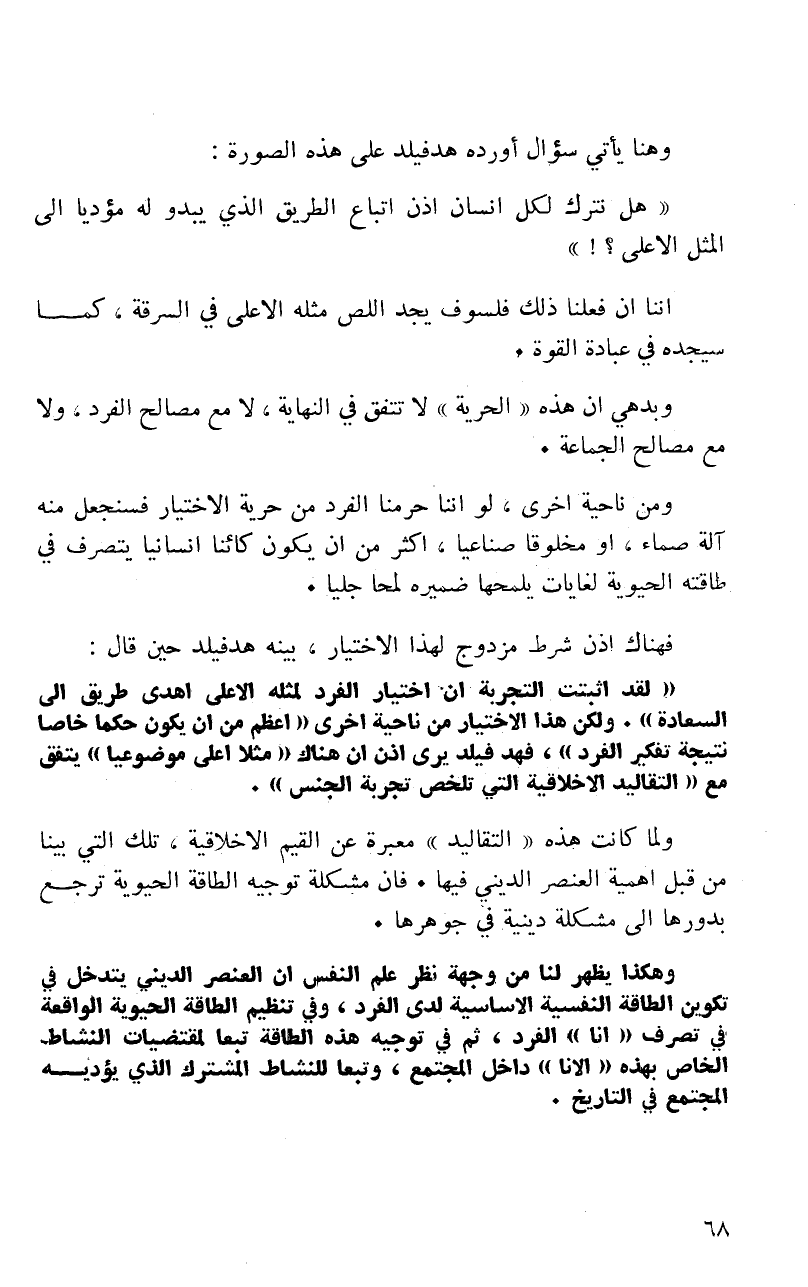 وهنا يأتي سؤال أورده هدفيلد على هذه الصورة :
« هل نترك لكل انسان اذن اتباع الطريق الذي يبدو له مؤديا الى
المثل الاعلى ؟ ! »
اننا ان فعلنا ذلك فلسوف يجد اللص مثله الاعلى في السرقة ، كمـــا
سيجده في عبادة القوة .
وبدهي ان هذه « الحرية » لا تتفق في النهاية ، لا مع مصالح الفرد ، ولا
مع مصالح الجماعة .
ومن ناحية اخرى ، لو اننا حرمنا الفرد من حرية الاختيار فسنجعل منه
آلة صماء ، او مخلوقا صناعيا ، اكثر من ان يكون كائنا انسانيا يتصرف في
طاقته الحيوية لغايات يلمحها ضميره لمحا جليا .
فهناك اذن شرط مزدوج لهذا الاختيار ، بينه هدفيلد حين قال :
« لقد اثبتت التجربة ان اختيار الفرد لمثله الاعلى اهدى طريق الى
السعادة » . ولكن هذا الاختيار من ناحية اخرى « اعظم من ان يكون حكما خاصا
نتيجة تفكير الفرد » ، فهد فيلد يرى اذن ان هناك « مثلا اعلى موضوعيا » يتفق
مع « التقاليد الاخلاقية التي تلخص تجربة الجنس » .
ولما كانت هذه « التقاليد » معبرة عن القيم الاخلاقية ، تلك التي بينا
من قبل اهمية العنصر الديني فيها . فان مشكلة توجيه الطاقة الحيوية ترجــع
بدورها الى مشكلة دينية في جوهرها .
وهكذا يظهر لنا من وجهة نظر علم النفس ان العنصر الديني يتدخل في
تكوين الطاقة النفسية الاساسية لدى الفرد ، وفي تنظيم الطاقة الحيوية الواقعة
في تصرف « انا » الفرد ، ثم في توجيه هذه الطاقة تبعا لمقتضيات النشاط
الخاص بهذه « الانا » داخل المجتمع ، وتبعا للنشاط المشترك الذي يؤديـــه
المجتمع في التاريخ .
٦٨